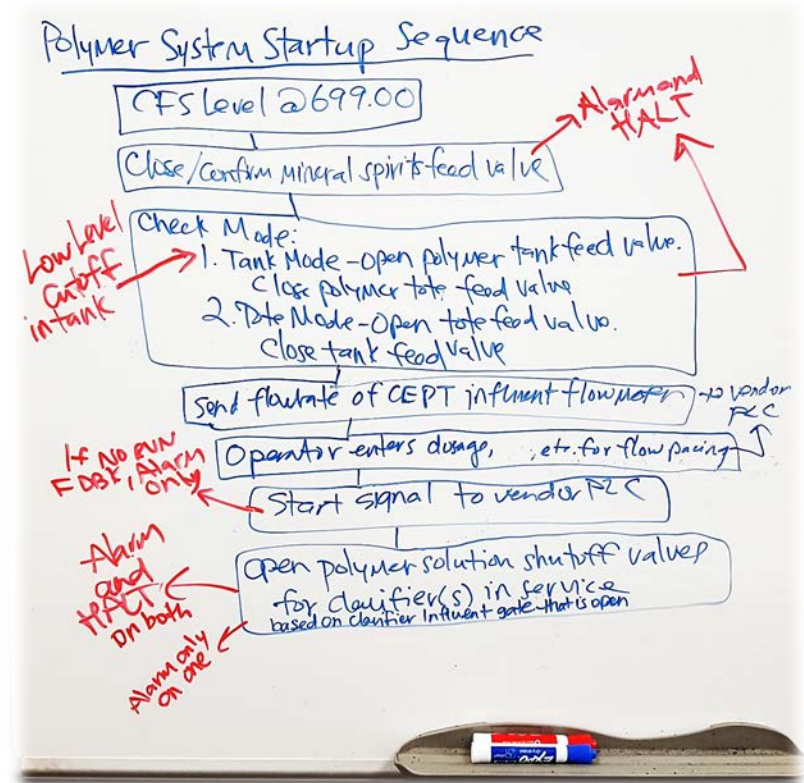 Polymer System Startup Sequence
CFS Level @ 699.00
Alarm and
HALT
Close/Confirm mineral spirits feed valve
Low Level
Cutoff
in tank
Check Mode:
1. Tank Mode - Open polymer tank feed valve.
Close polymer tote feed valve
2. Tote Mode - Open tote feed valve.
Close tank feed valve
Send flowrate of CEPT influent flowmeter → to vendor
PLC
Operator enters dosage, , etc. for flow pacing
If NO RUN
FDBK, Alarm
only
Start signal to vendor PLC
Alarm
and
HALT
on both
Alarm only
on one
Open polymer solution shutoff valves
for clarifier(s) in service
based on clarifier influent gate that is open
EXPO